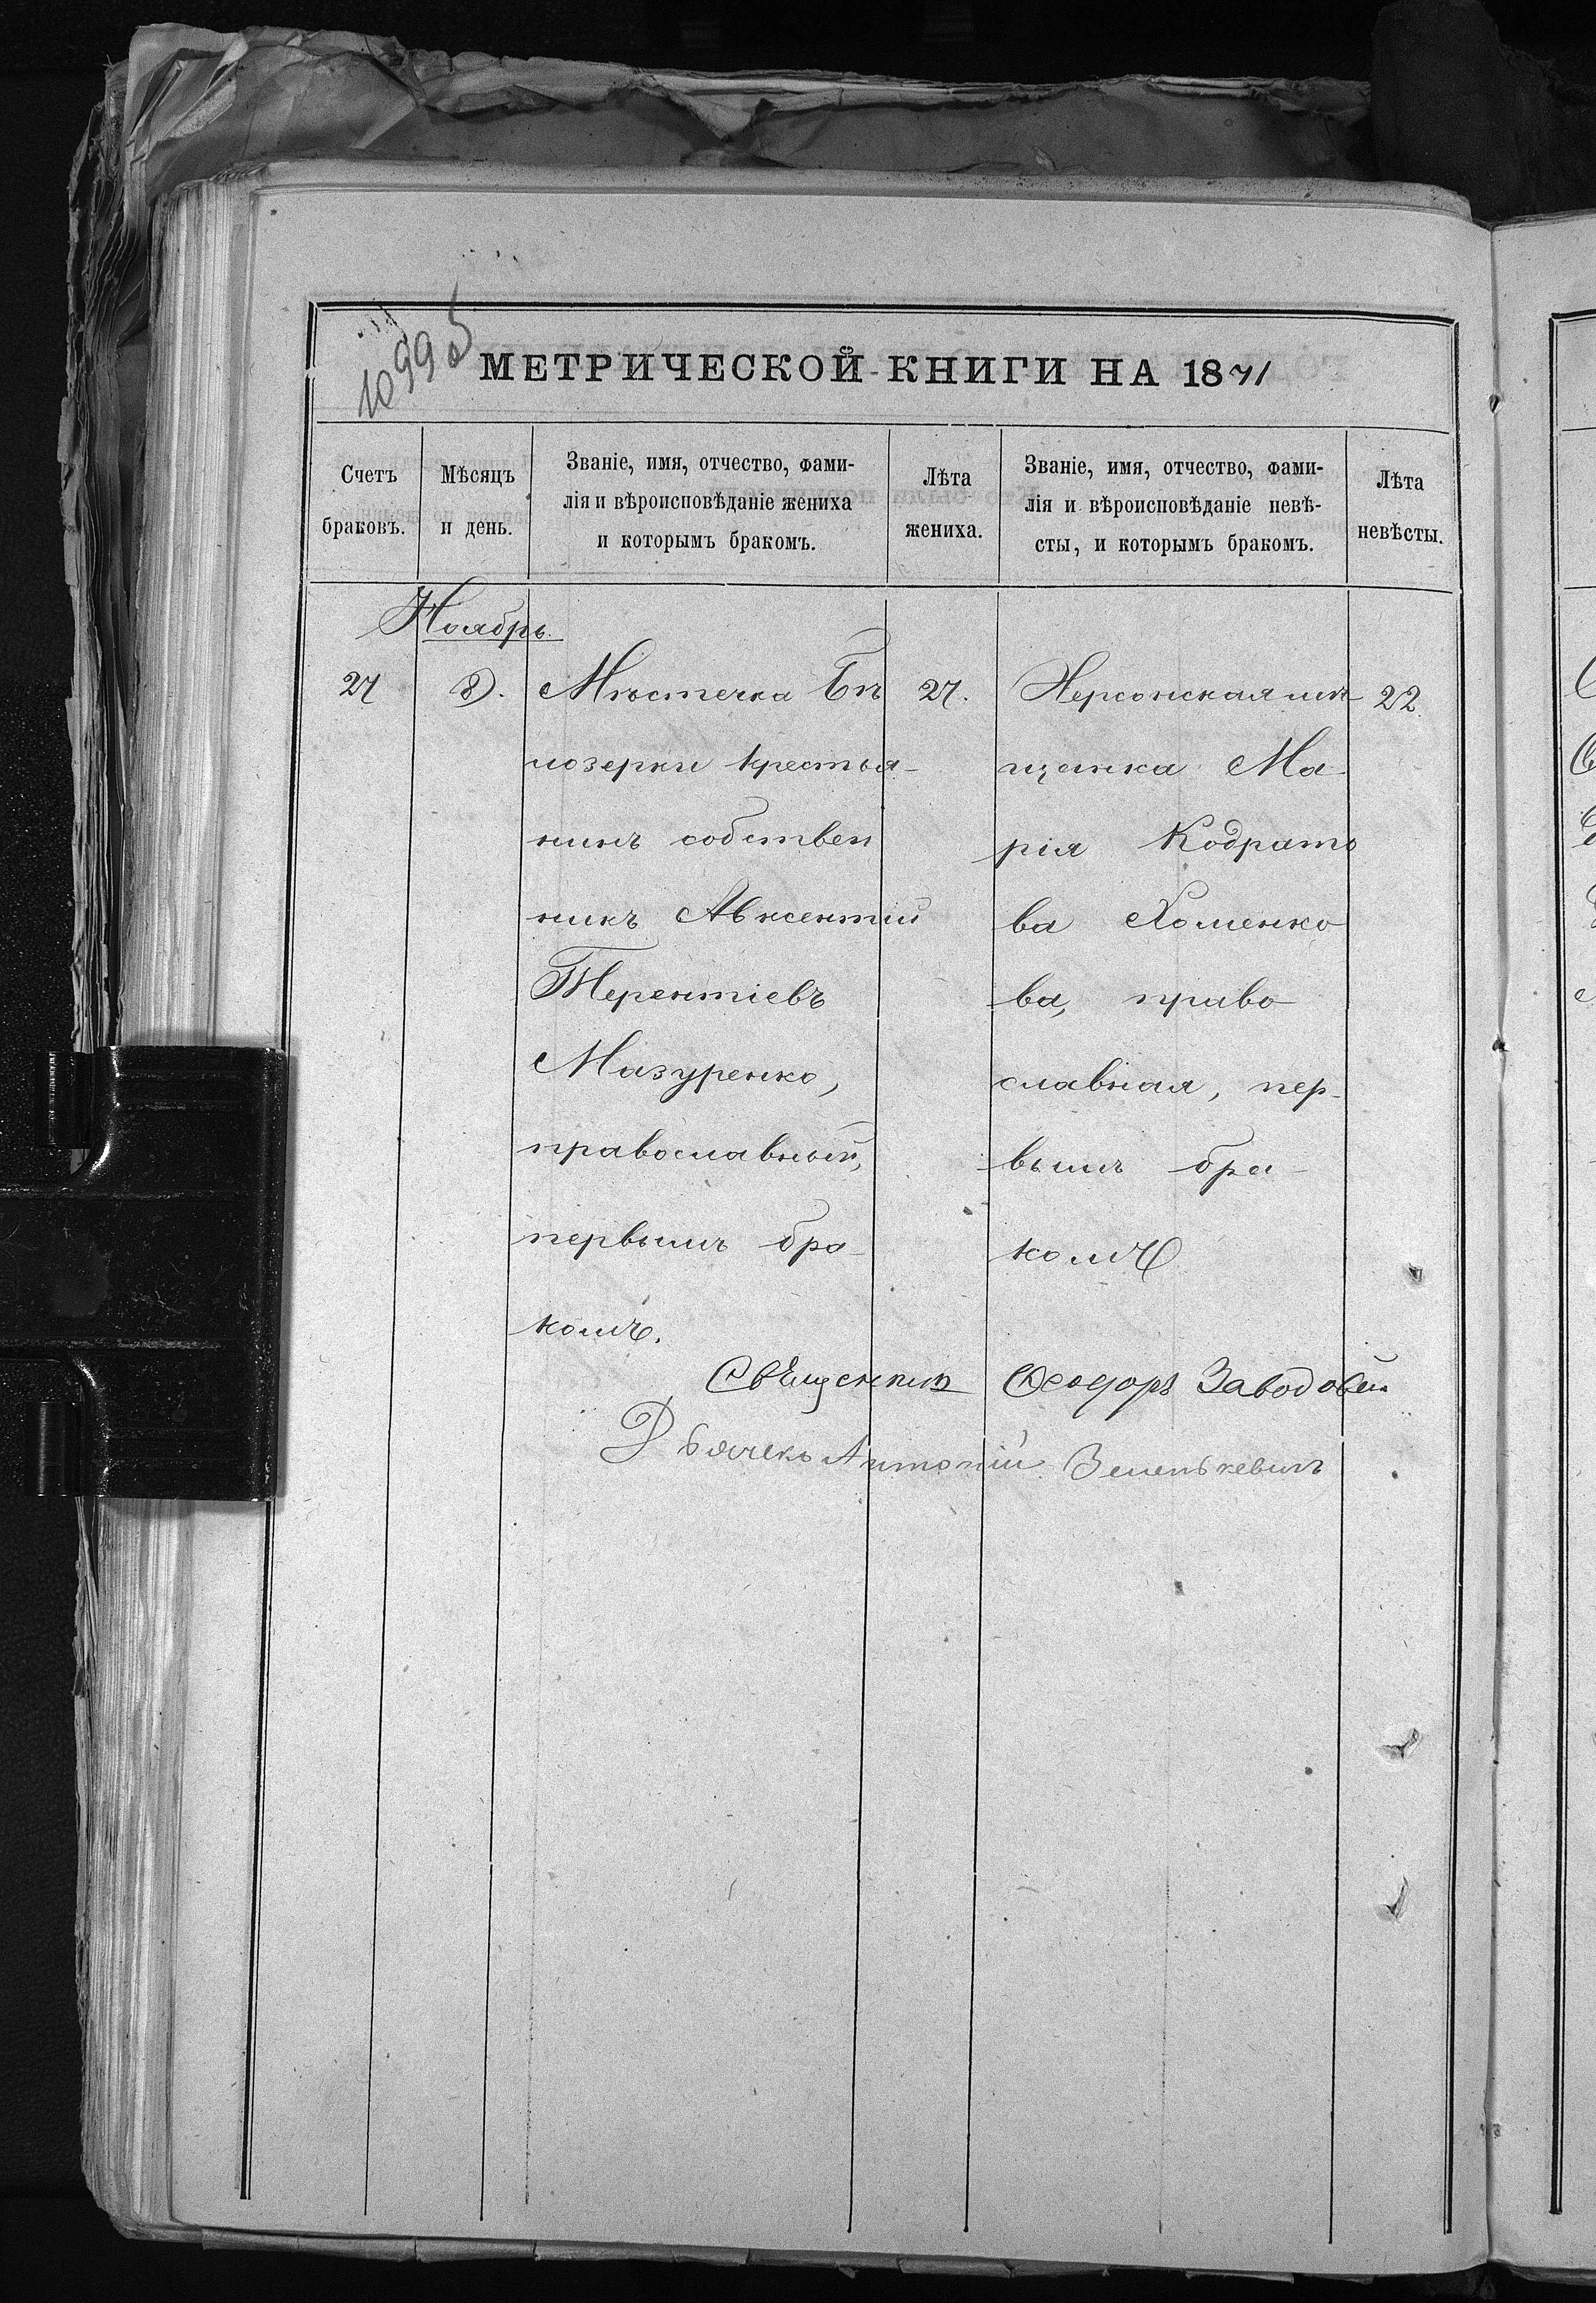 1099 об
МЕТРИЧЕСКОЙ КНИГИ НА 1871
Счетъ браковъ.
Мѣсяцъ и день.
Званіе, имя, отчество, фами-
лія и вѣроисповѣданіе жениха
и которымъ бракомъ.
Лѣта жениха.
Званіе, имя, отчество, фами-
лія и вѣроисповѣданіе невѣ-
сты, и которымъ бракомъ.
Лѣта невѣсты.
Ноябрь
27
8.
Мѣстечка Бѣ
лозерки крестья-
нинъ собствен
никъ Авксентій
Терентіевъ
Мазуренко,
православный,
первымъ бра-
комъ.
27.
Херсонская мѣ-
щанка Ма-
рія Кодрато
ва Хоменко
ва, право-
славная, пер-
вымъ бра-
комъ
22.
Свѣщенник Феодоръ Заводовск
Дьячекъ Антоній Зеленькевичъ